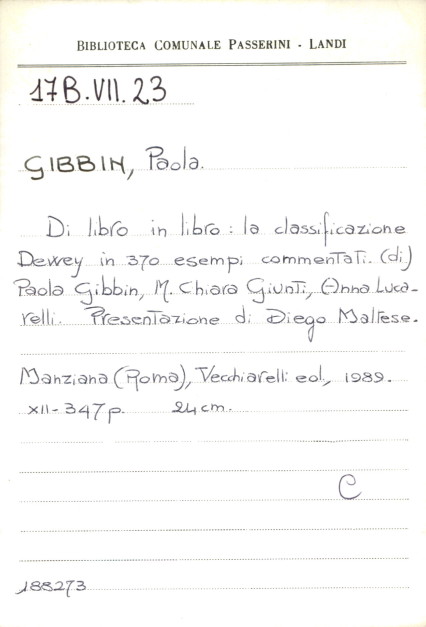 BIBLIOTECA COMUNALE PASSERINI - LANDI
17B.VII.23
GIBBIN, Paola.
Di libro in libro : la classificazione
Dewey in 370 esempi commentati. (di)
Paola Gibbin, M. Chiara Giunti, Anna Luca-
relli. Presentazione di Diego Maltese.
Manziana (Roma), Vecchiarelli ed., 1989.
XII-347 p. 24 cm.
C
188273